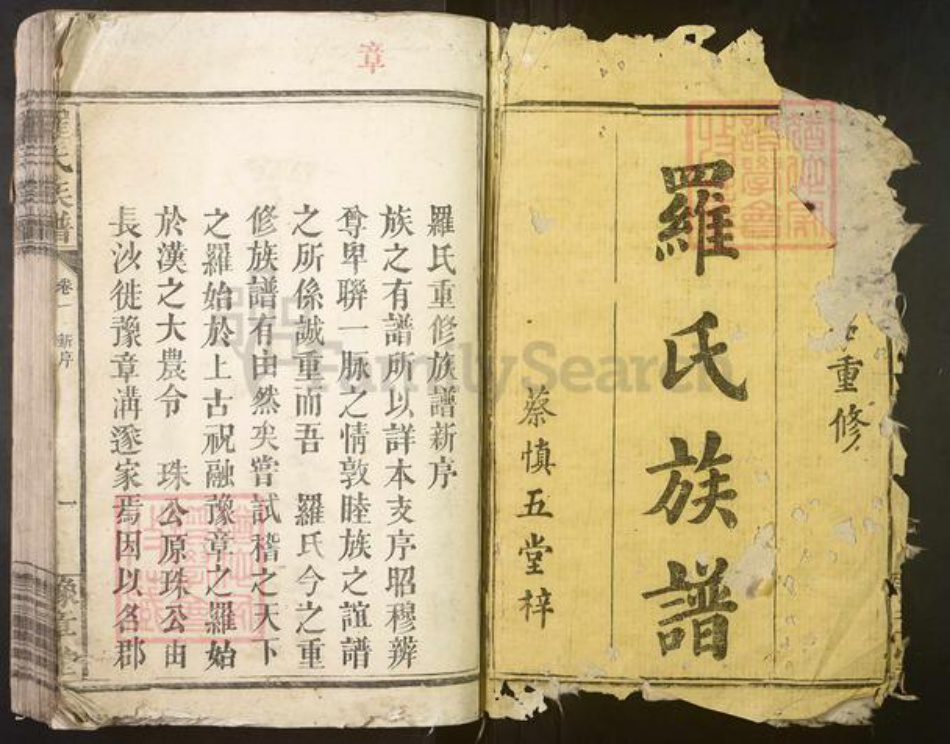 重修
羅氏族譜
蔡慎五堂梓
章
羅氏重修族譜新序
族之有譜所以詳本支序昭穆辨
尊卑聯一脉之情敦睦族之誼譜
之所係誠重而吾 羅氏今之重
修族譜有由然矣嘗試稽之天下
之羅始於上古祝融豫章之羅始
於漢之大農令 珠公原珠公由
長沙徙豫章溝遂家焉因以名郡
羅氏族譜
卷一 新序
一
豫章堂
FamilySearch